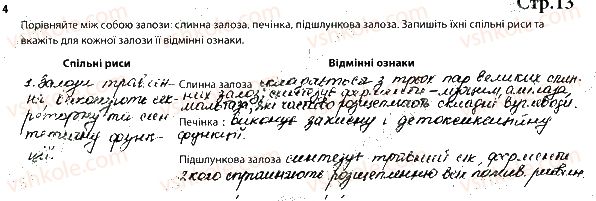 4
Стр.13
Порівняйте між собою залози: слинна залоза, печінка, підшлункова залоза. Запишіть їхні спільні риси та
вкажіть для кожної залози її відмінні ознаки.
Спільні риси
Відмінні ознаки
1. Залози травлен-
ня виконують сек-
реторну та син-
тетичну функ-
ції.
Слинна залоза складається з трьох пар великих слин-
них залоз, синтезує ферменти - муцин, амілаза,
мальтаза, які частково розщеплюють складні вуглеводи.
Печінка: виконує захисну і детоксикаційну
функції.
Підшлункова залоза синтезує травний сік, ферменти
з кого сприяють розщепленню всіх пожив. речовин.